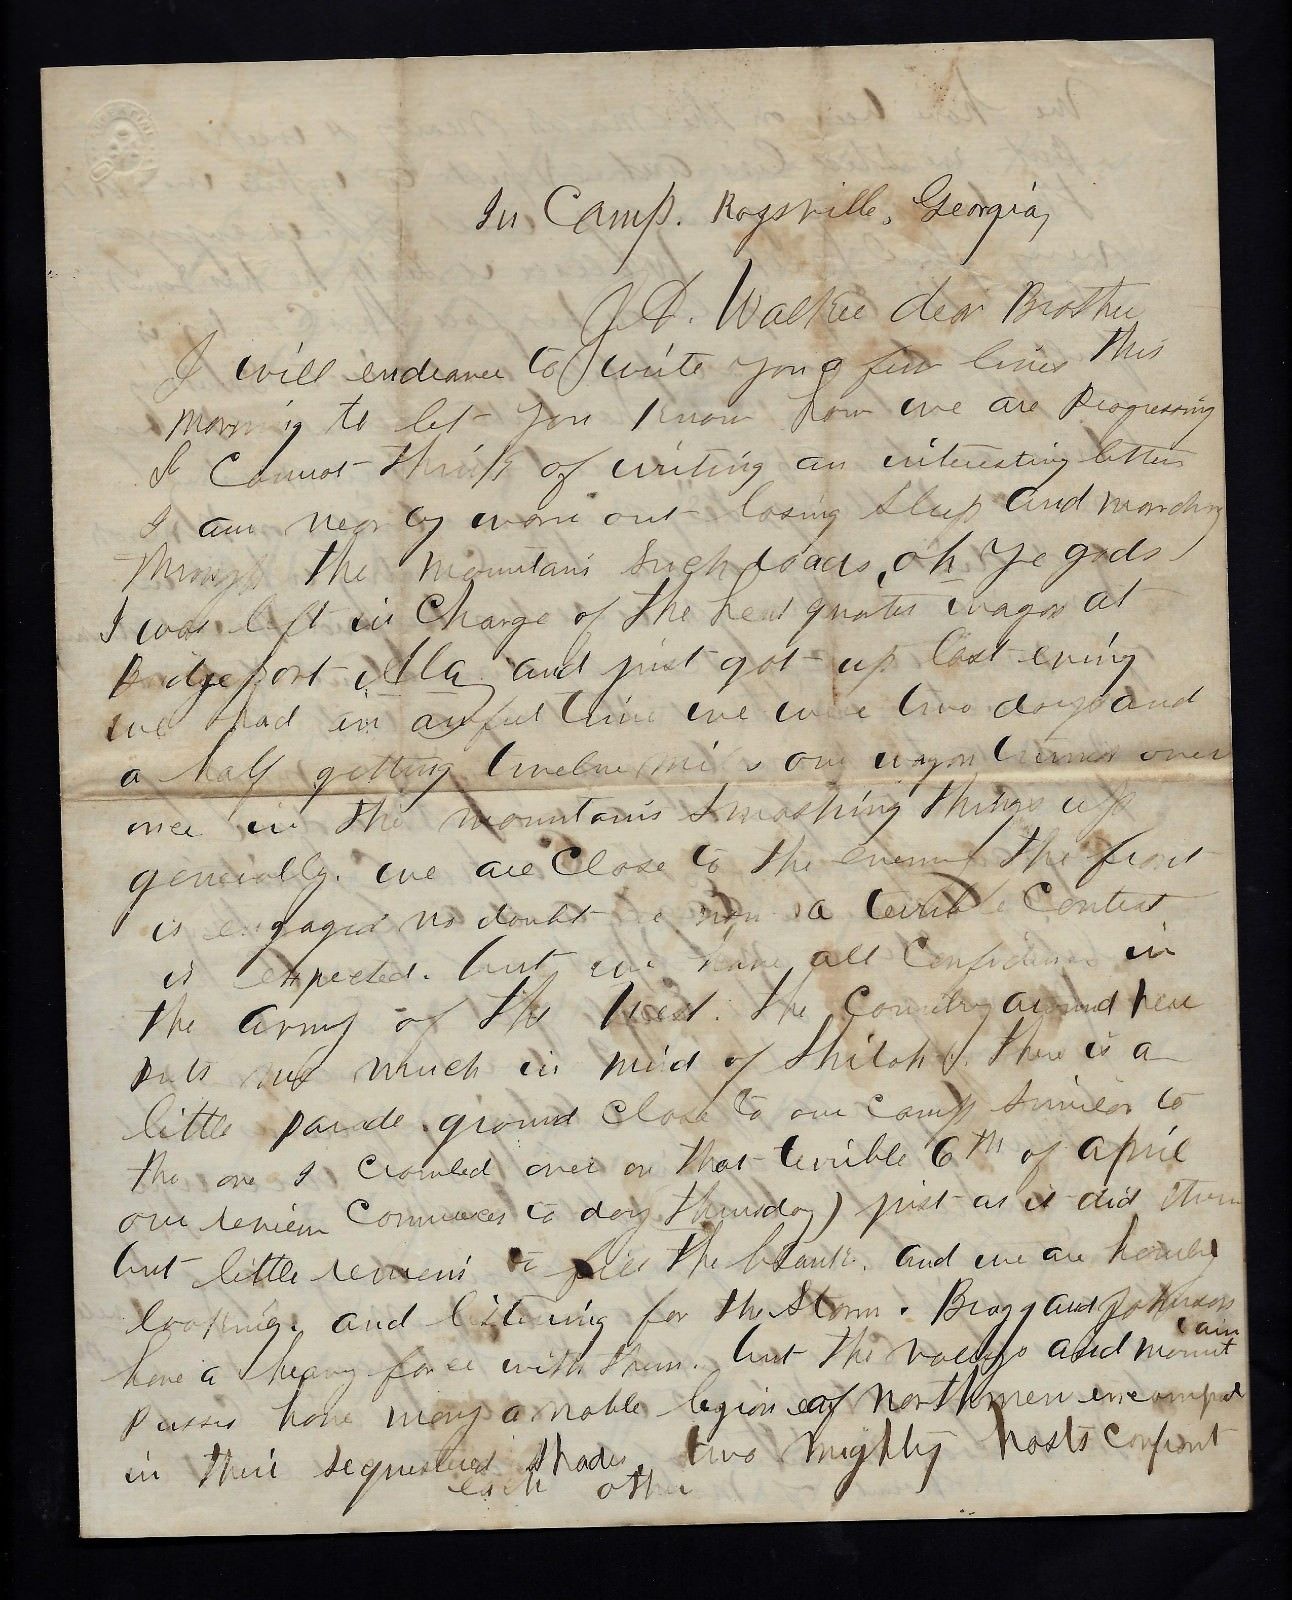 In Camp. Rogsville, Georgia,
J. D. Walker dear Brother
I will endeaver to write you a few lines this
morning to let you know how we are progressing
I cannot think of writing an interesting letter
I am nearly worn out losing sleep and marching
through the mountains such roads, oh ye gods
I was left in charge of the head quarters wagon at
Bridgeport Ala, and just got up last evning
we had an awful time we were two days and
a half getting twelve miles our wagon turned over
once in the mountains smashing things up
generally. we are close to the enemy the front
is engaged no doubt now a terrible contest
is expected. but we have all confidence in
the army of the West. the country around here
puts me much in mind of Shiloh. there is a
little parade ground close to our camp similar to
the one I crawled over on that terrible 6th of april
our review commences to day Thursday) just as it did then
but little remains to fill the blank. and we are hourly
looking. and listening for the storm. Bragg and Johnson
have a heavy force with them. but the valleys and mountain
passes have many a noble legion of northmen encamped
in their sequestered shades, two mighty hosts confront
each other